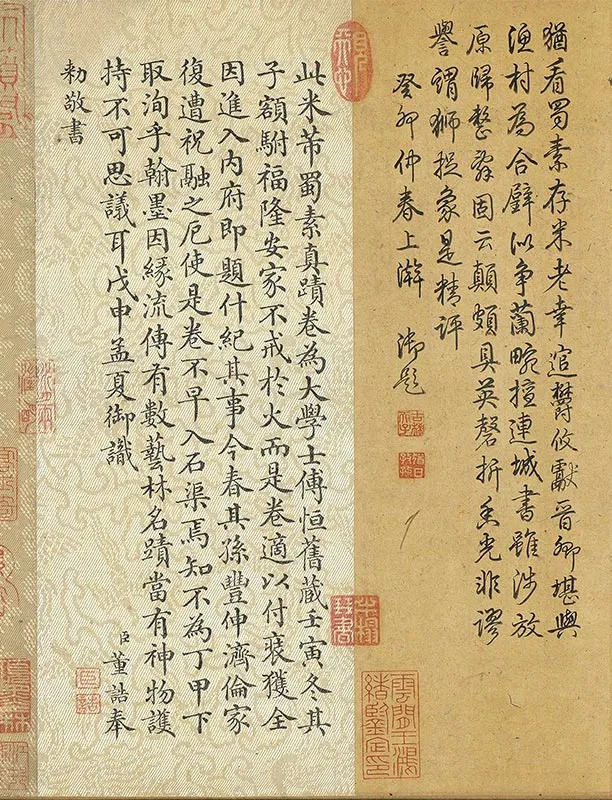 猶看蜀素存米老幸逭欝攸獻晉卿堪與
漁村為合璧似爭蘭畹擅連城書雖涉放
原歸整固云顛頗具英磬折香光非謬
譽謂獅捉象是精評
癸卯仲春上澣 御題
古稀天子
猶日孜孜
半榻琴書
雲間王鴻緒鑒定印
此米芾蜀素真蹟卷為大學士傅恒舊藏壬寅冬其
子額駙福隆安家不戒於火而是卷適以付裱獲全
因進入內府即題什紀其事今春其孫豐伸濟倫家
復遭祝融之厄使是卷不早入石渠焉知不為丁甲下
取洵乎翰墨因緣流傳有數藝林名蹟當有神物護
持不可思議耳戊申孟夏御識
臣董誥奉
勅敬書
臣誥